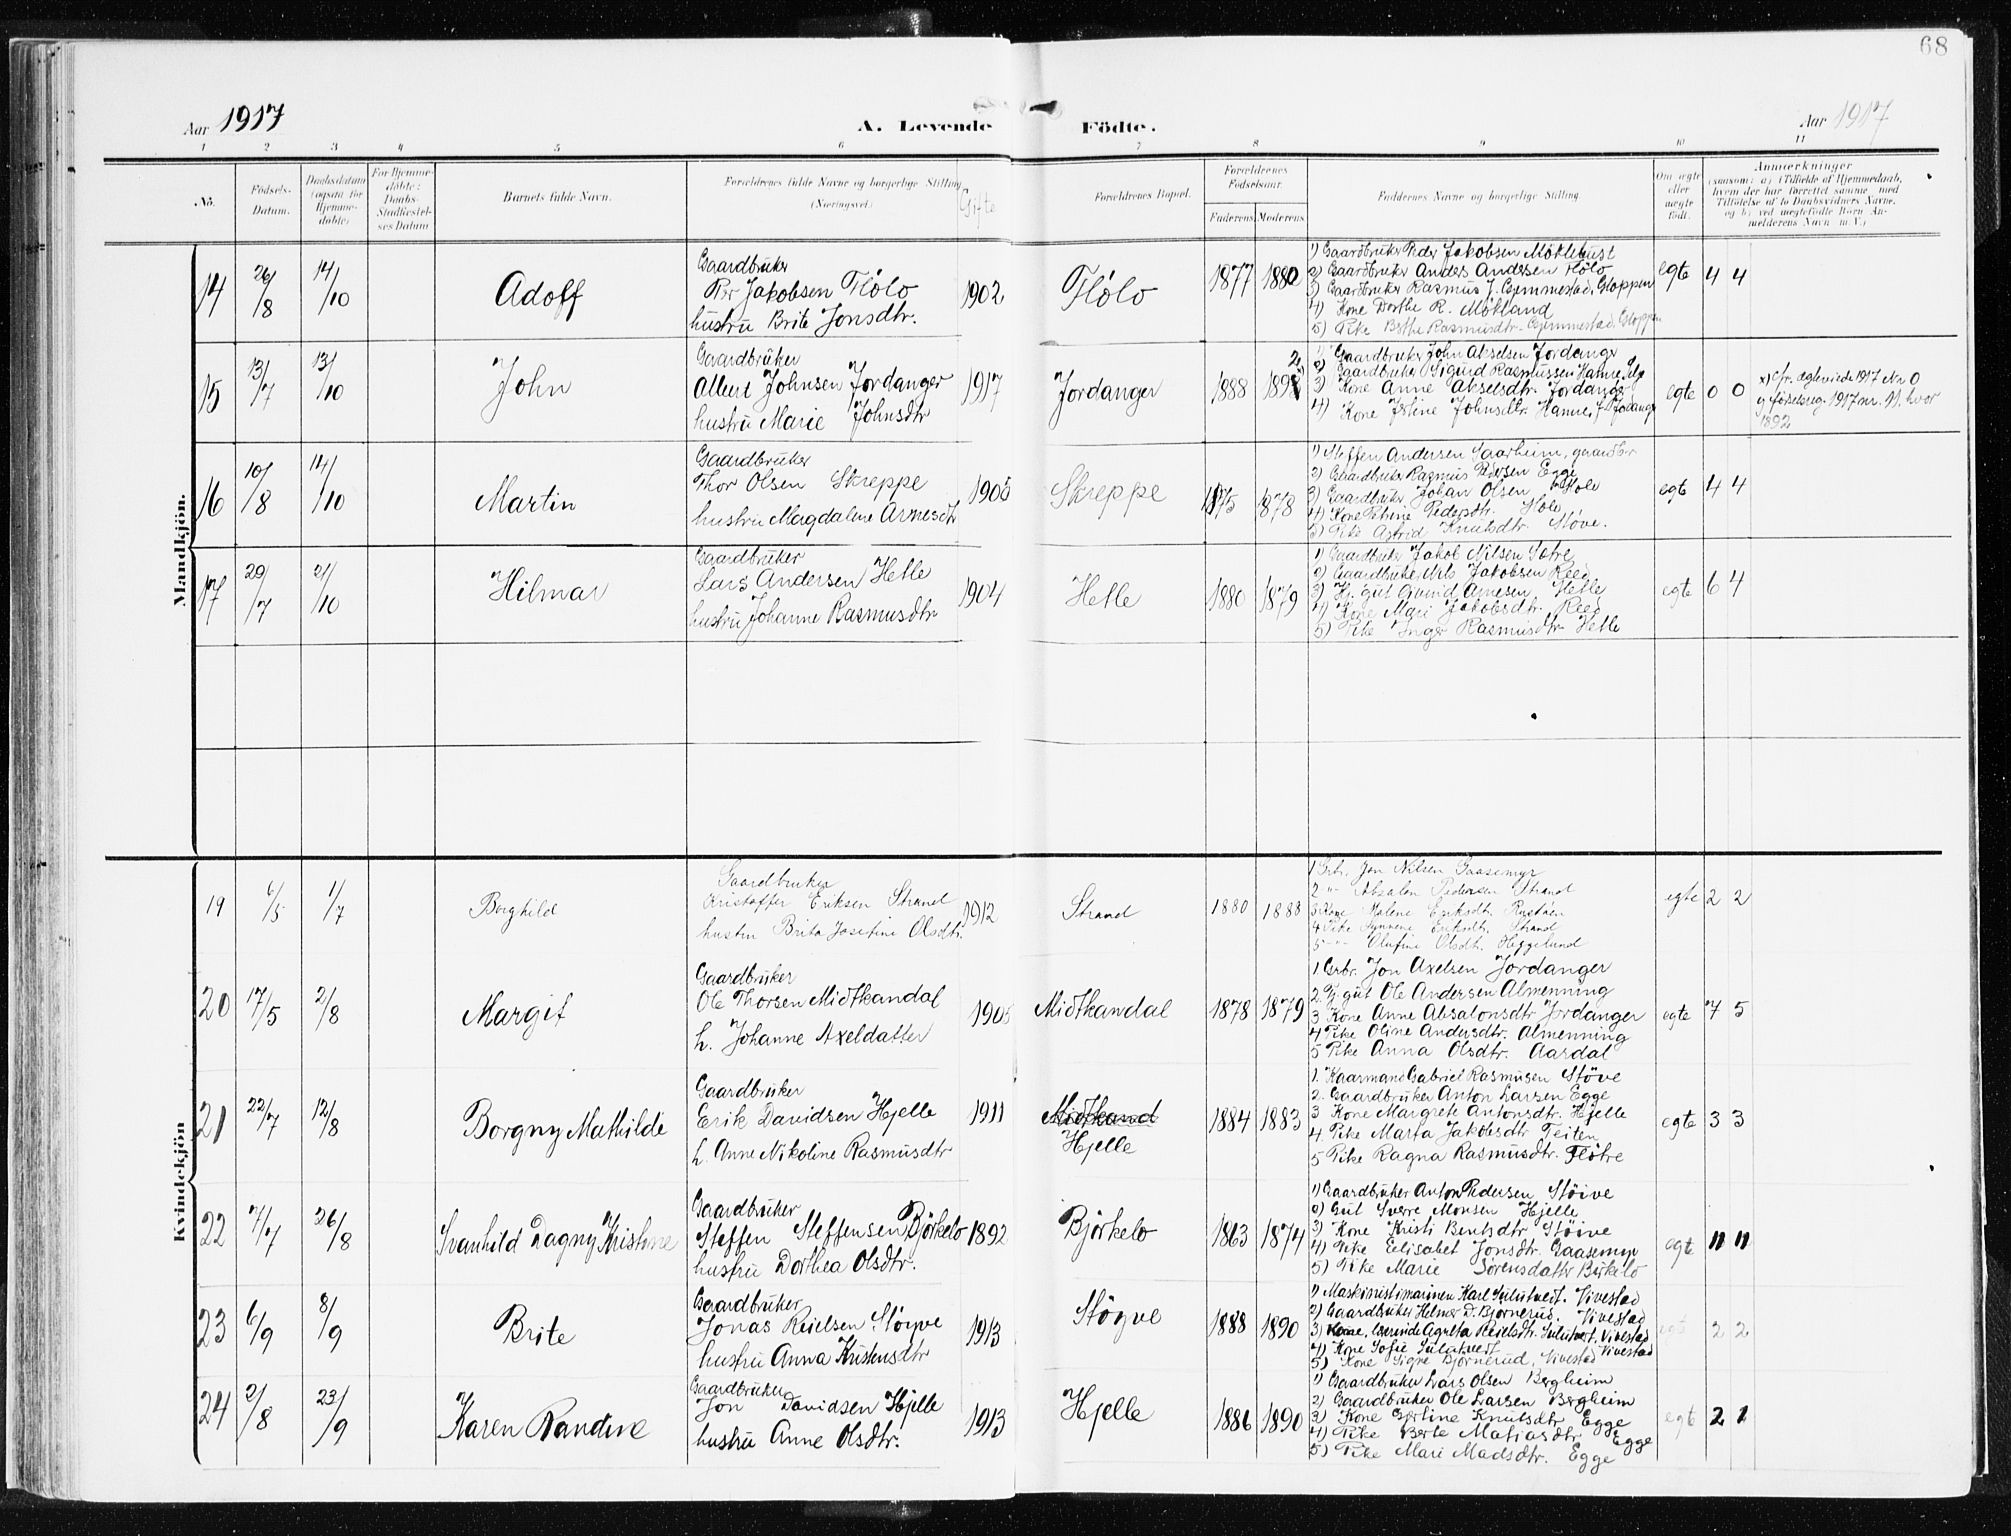 68
Aar 1917
A. Levende Födte.
Aar 1917
1 2 3 4 5 6 7 8 9 10 11
No.
Födsels-Datum.
Daabsdatum (ogsaa for Hjemme-döbte)
For Hjemme-döbte: Daabs-Stadfæstel-ses Datum
Barnets fulde Navn.
Forældrenes fulde Navne og borgerlige Stilling (Næringsvei.)
Gifte
Forældrenes Bopæl.
Forældrenes Födselsaar.
Faderens Moderens
Faddernes Navne og borgerlige Stilling.
Om ægte eller uægte født.
Anmærkninger
(saasom: a) i Tilfælde af Hjemmedaab,
hvem der har forrettet samme, med
Tilföielse af to Daabsvidners Navne.
og b) ved uægtefödte Börn An-
melderens Navn m. V.)
Mandkjön.
14 26/8 14/10 Adolf
Gaardbruker
Per Jakobsen Flölo
hustru Brite Jonsdtr.
1902 Flölo 1877 1880
1) Gaardbruker Peder Jakobsen Möklebust
2) Gaardbruker Anders Andersen Flölo
3) Gaardbruker Rasmus J. Gjemmestad, Gloppen
4) Kone Dorthe R. Mökland
5) Pike Berthe Rasmusdtr. Gjemmestad, Gloppen
egte 4 4
15 13/7 13/10 John
Gaardbruker
Albert Johnsen Jordanger
hustru Marie Johnsdtr
1917 Jordanger 1888 1892
1) Gaardbruker John Akselsen Jordanger
2) Gaardbruker Sigurd Rasmussen Hamre,
3) Kone Anne Akselsdtr. Jordanger
4) Kone Johnsdtr. Hamre,
egte 0 0
x) cfr. egteviede 1917 Nr 0
g födselsreg. 1917 nr. 11. hvor
1892
16 10/8 14/10 Martin
Gaardbruker
Thor Olsen Skreppe
hustru Magdalene Arnesdtr
1905 Skreppe 1875 1878
1) Steffen Andersen Saarheim, gaardbr
2) Gaardbruker Rasmus Pedersen Egge
3) Gaardbruker Johan Olsen Hole
4) Kone Petrine Pedersdtr. Hole
5) Pike Astrid Knutsdtr. Stöve.
egte 4 4
17 29/7 21/10 Hilmar
Gaardbruker
Lars Andersen Hetle
hustru Johanne Rasmusdtr
1904 Hetle 1880 1879
1) Gaardbruker Jakob Nilsen Sætre
2) Gaardbruker Nils Jakobsen Reed
3) Hj. gut Eivind Arnesen Hetle
4) Kone Mari Jakobsdtr. Reed
5) Pike Inger Rasmusdtr Hetle
egte 6 4
Kvindekjön
19 6/5 1/7 Borghild
Gaardbruker
Kristoffer Eriksen Strand
hustru Brita Josefine Olsdtr.
1912 Strand 1880 1888
1 Grbr. Jon Nilsen Gaasemyr
2 -"- Absalon Pedersen Strand
3 Kone Malene Eriksdtr. Rustöen
4 Pike Synneve Eriksdtr. Strand
5 -"- Olufine Olsdtr. Heggelund
egte 2 2
20 17/5 2/8 Margit
Gaardbruker
Ole Thorsen Midtkandal
h. Johanne Axeldatter
1905 Midtkandal 1878 1879
1. Grbr. Jon Axelsen Jordanger
2. Tj. gut Ole Andersen Almenning
3 Kone Anne Absalonsdtr Jordanger
4 Pike Oline Andersdtr. Almenning
5 Pike Anna Olsdtr. Aardal
egte 7 5
21 22/7 12/8 Borgny Mathilde
Gaardbruker
Erik Davidsen Hjelle
h. Anne Nikoline Rasmusdtr
1911 Midtkand Hjelle 1884 1883
1. Kaarmand Gabriel Rasmusen Stöve
2. Gaardbruker Anton Larsen Egge
3 Kone Margrete Antonsdtr. Hjelle
4. Pike Marta Jakobsdtr Teiten
5 Pike Ragna Rasmusdtr. Flötre
egte 3 3
22 7/7 26/8 Svanhild Dagny Kristine
Gaardbruker
Steffen Steffensen Björkelo
hustru Dorthea Olsdtr.
1892 Bjørkelo 1863 1874
1) Gaardbruker Anton Pedersen Stöive
2) Gut Sverre Monsen Hjelle
3) Kone Kristi Bentsdtr Stöive
4) Pike Elisabet Jonsdtr. Gaasemyr
5) Pike Marie Sörensdatter Birkelo
egte 11 11
23 6/9 8/9 Brite
Gaardbruker
Jonas Reielsen Stöyve
hustru Anna Kristensdtr
1913 Stöyve 1888 1890
1) Maskinist i marinen Karl Sulutvedt. Vivestad
2) Gaardbruker Helmer D. Bjørnerud. Vivestad
3) Kone, Gerinde Agnetha Reielsdtr. Sulutvedt, Vivestad
4) Kone Sofie Sulutvedt Vivestad
5) Kone Signe Bjørnerud, Vivestad
egte 2 2
24 2/8 23/9 Karen Randine
Gaardbruker
Jon Davidsen Hjelle
hustru Anne Olsdtr.
1913 Hjelle 1886 1890
1) Gaardbruker Lars Olsen Bergheim
2) Gaardbruker Ole Larsen Bergheim
3) Kone Gjertine Knutsdtr Egge
4) Pike Berte Matiasdtr Egge
5) Pike Mari Madsdtr. Egge
egte 2 1